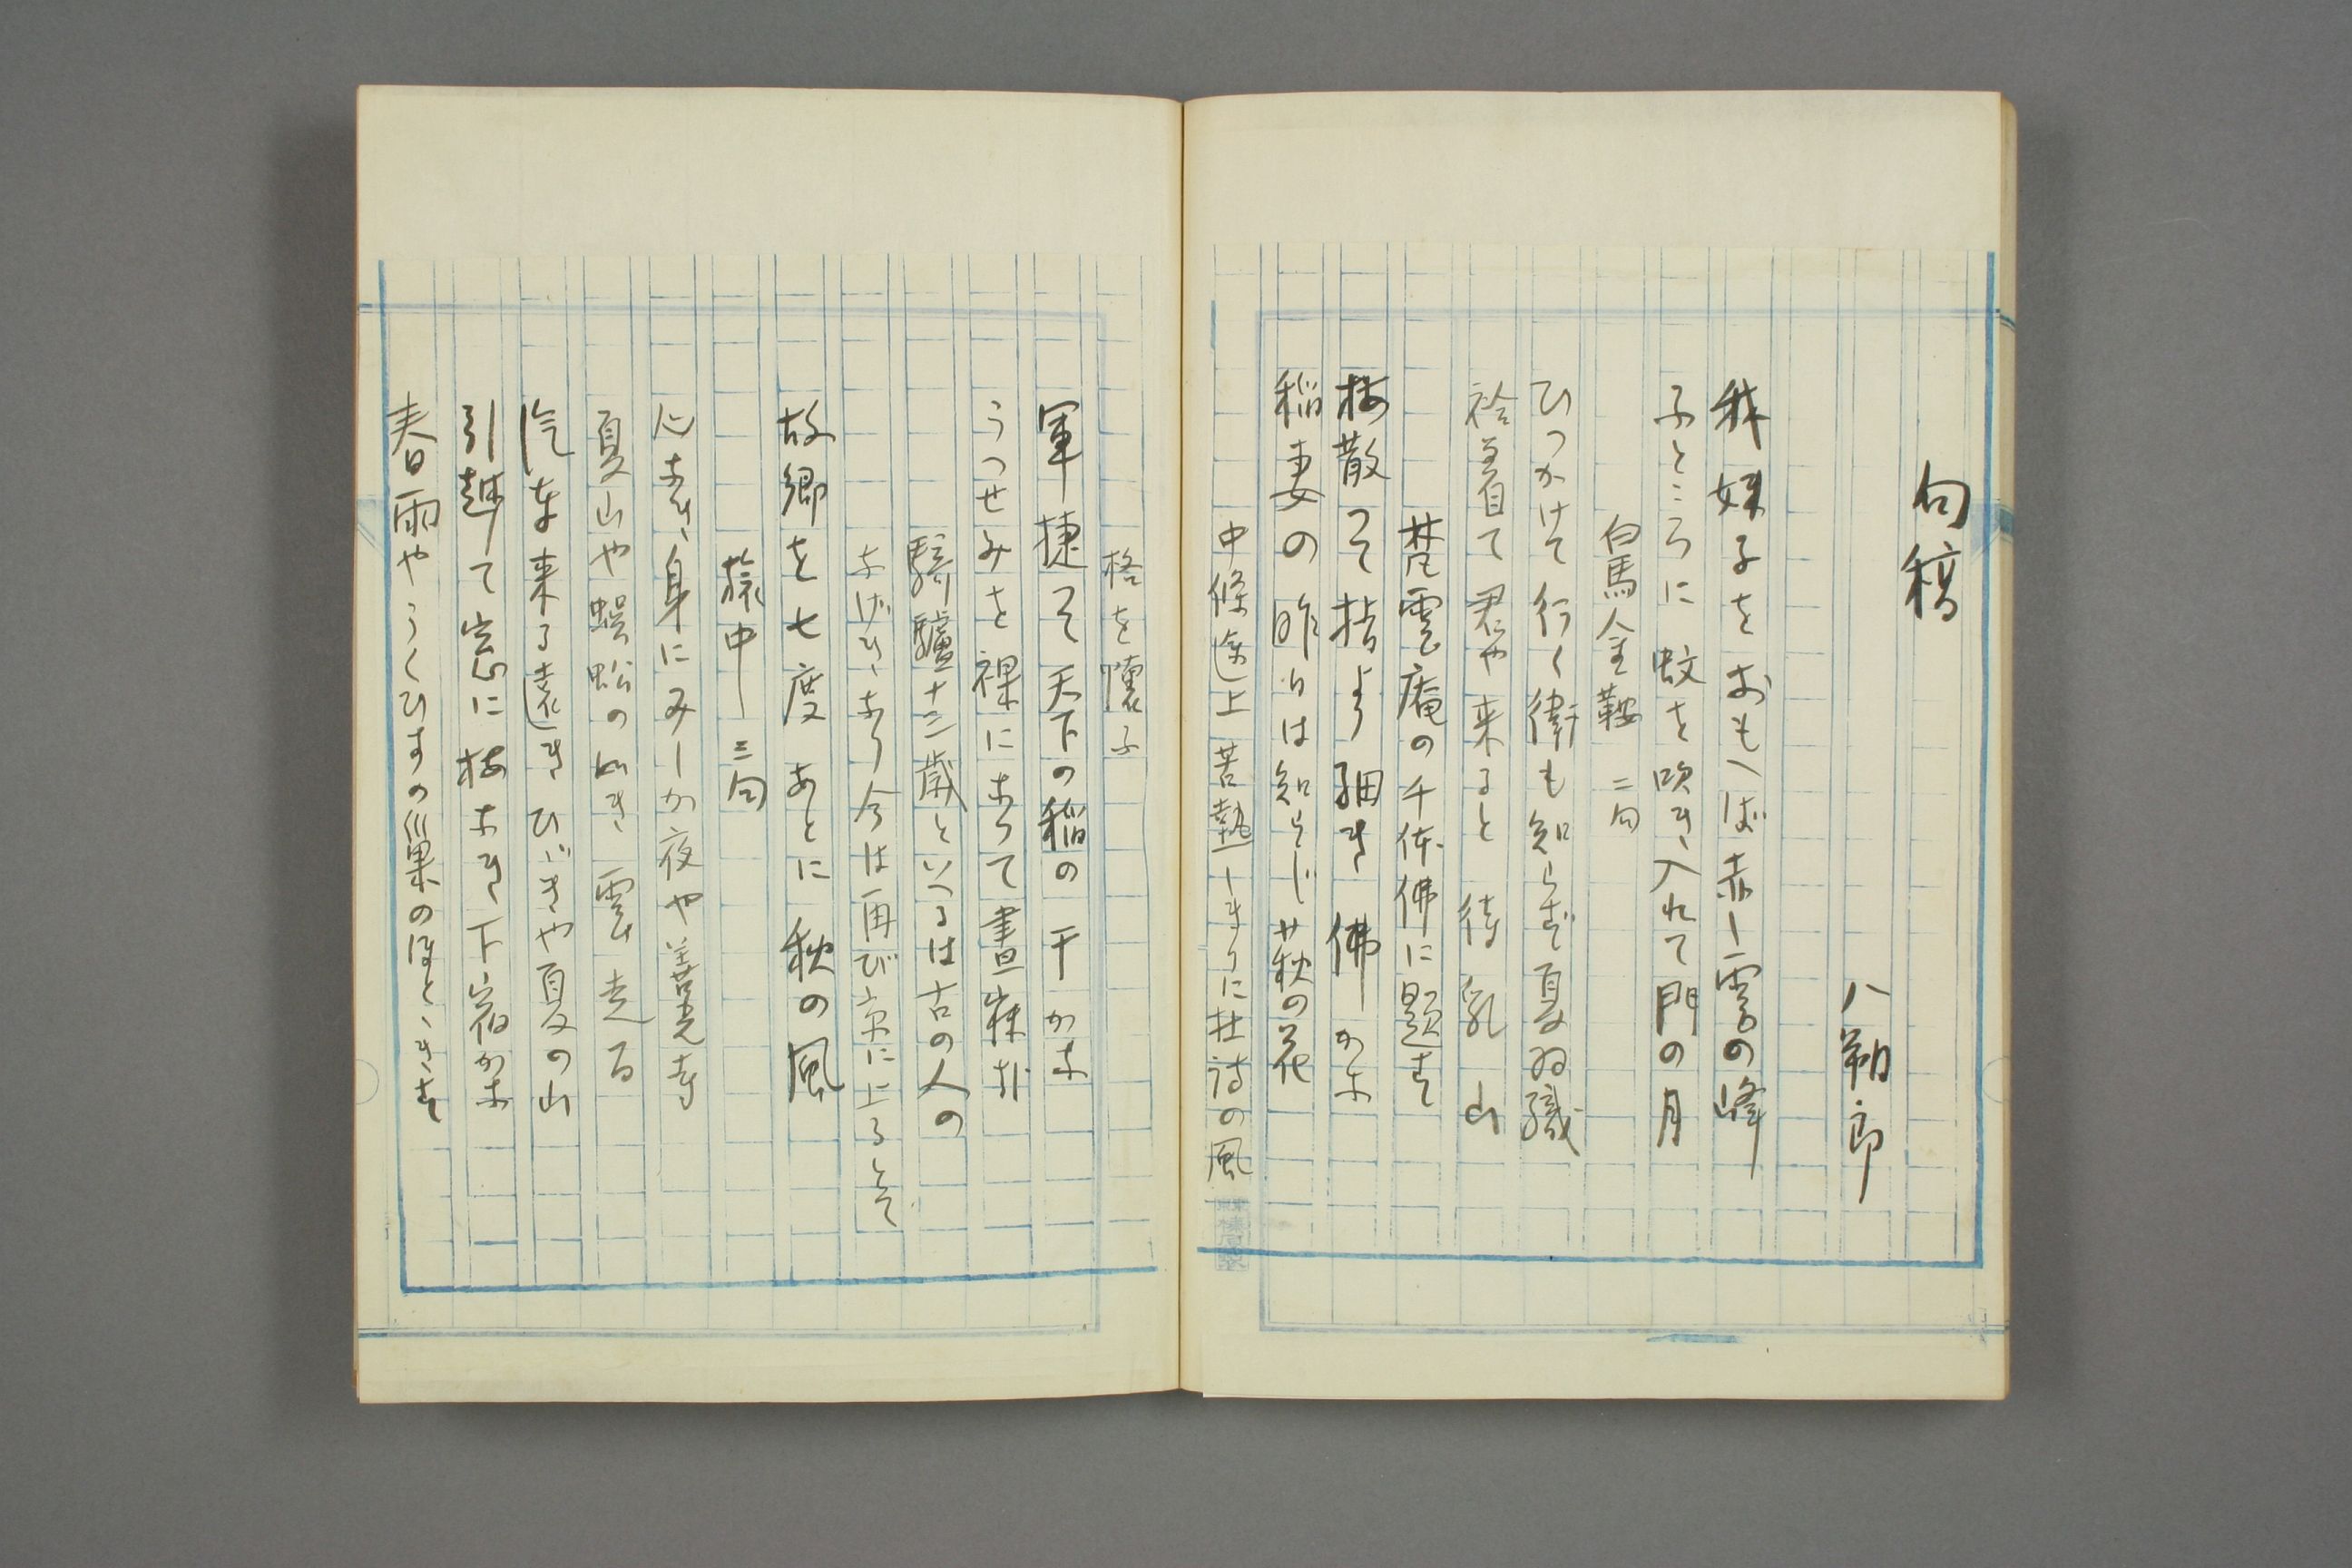 句稿
八朔郎
我妹子をおもへば赤し雲の峰
ふところに蚊を吹き入れて門の月
白馬金鞍 二句
ひつかけて行く衛も知らず夏羽織
袷着て君や来ると待乳山
梵雲庵の千体佛に題す
梅散つて指より細き佛かな
稲妻の昨日は知らじ萩の花
中條途上苦熱しきりに杜詩の風
格を懐ふ
軍捷つて天下の稲の干かな
うつせみを裸になつて晝寐哉
騎驢十三歳といへるは古の人の
なげきなり今は再び京に上るとて
故郷を七度あとに秋の風
旅中 三句
心なき身にみじか夜や善光寺
夏山や蜈蚣の如き雲走る
汽車来る遠きひゞきや夏の山
引越して窓に梅なき下宿かな
春雨やうぐひすの巣のほとゝぎす